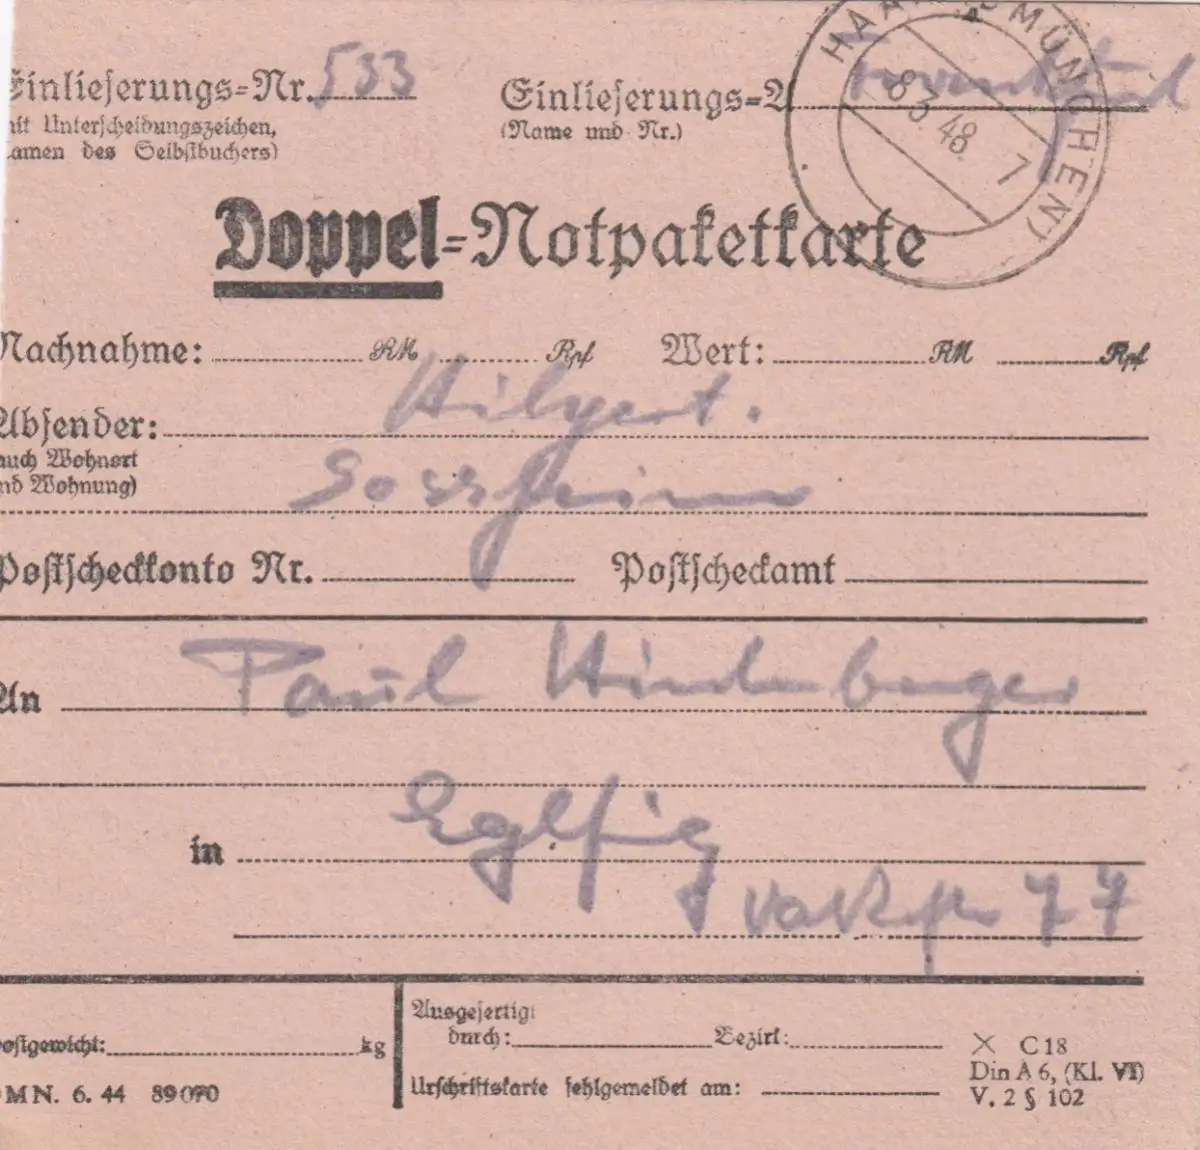 Einlieferungs=Nr. 533
mit Unterscheidungszeichen,
Namen des Selbstbuchers)
Einlieferungs=A
(Name und Nr.)
HAAR (MÜNCHEN)
8.3.48. 7
Doppel=Notpaketkarte
Nachnahme: RM Rpf Wert: RM Rpf
Absender: Hilgert.
auch Wohnort
und Wohnung)
Sossheim
Postscheckkonto Nr. Postscheckamt
An Paul Hindenberger
in Eglfing
77
Postgewicht: kg
MN. 6. 44 89070
Ausgefertigt
durch: Bezirk:
Urschriftskarte fehlgemeldet am:
× C 18
Din A 6, (Kl. VI)
V. 2 § 102